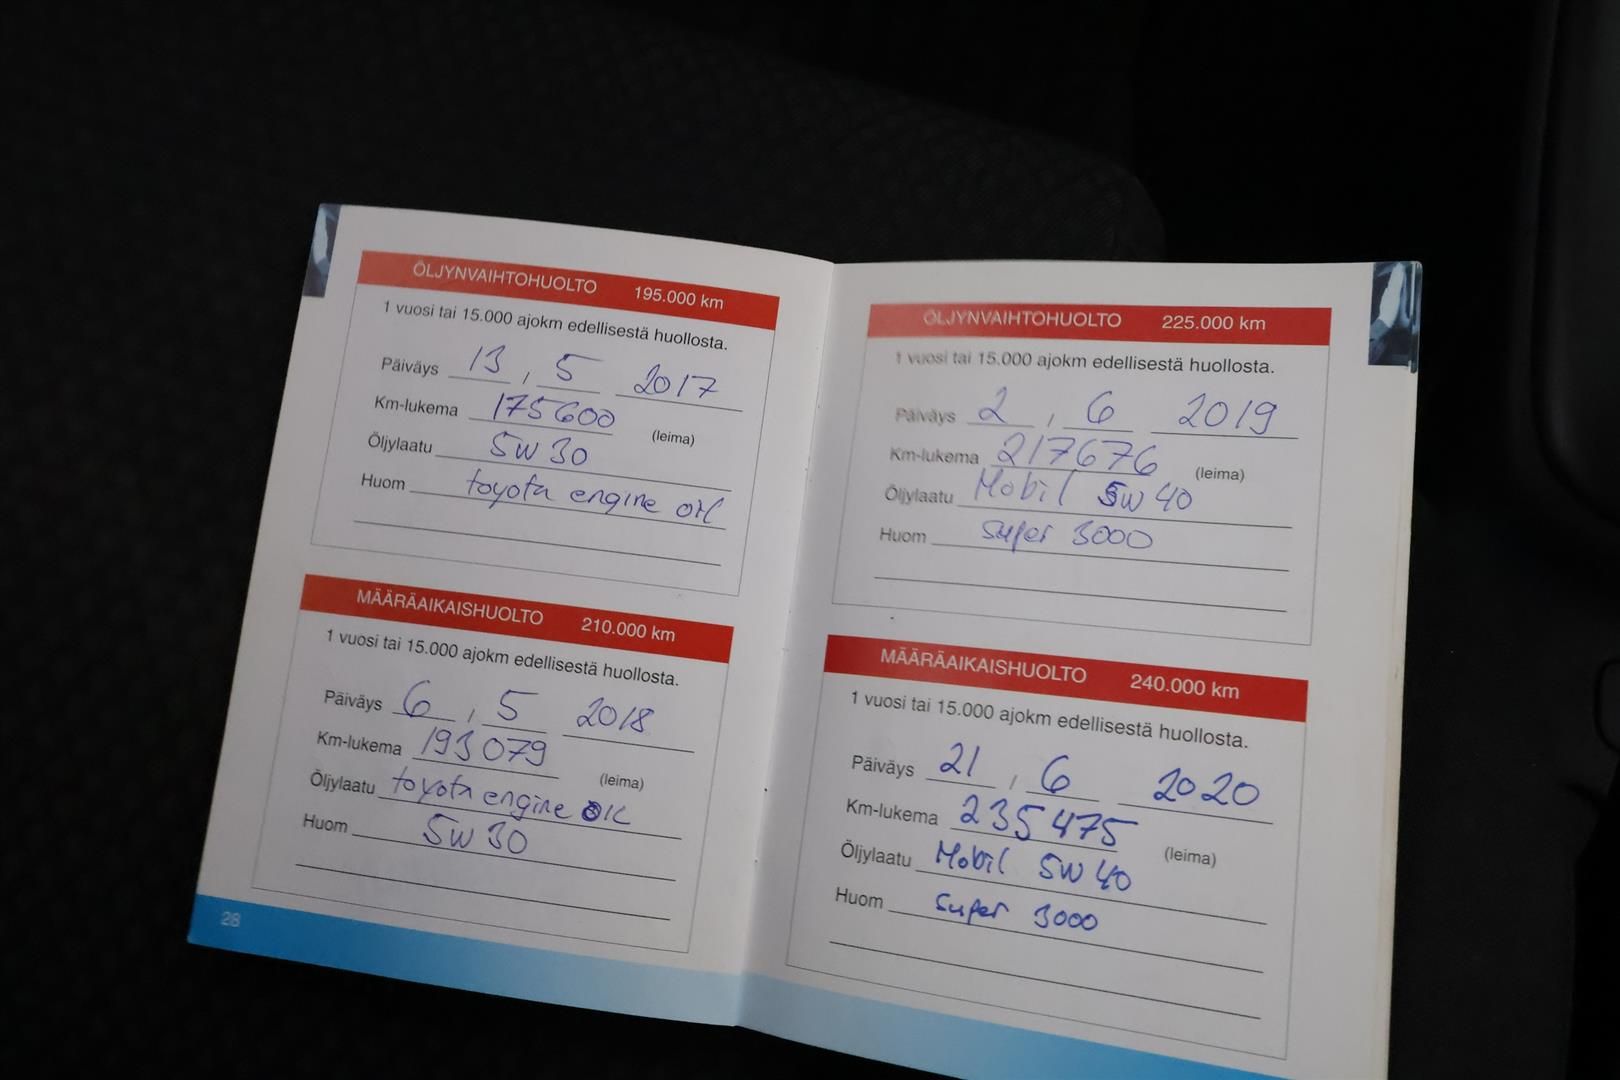 ÖLJYNVAIHTOHUOLTO 195.000 km
1 vuosi tai 15.000 ajokm edellisestä huollosta.
Päiväys 13 , 5 2017
Km-lukema 175600 (leima)
Öljylaatu 5W30
Huom toyota engine oil
MÄÄRÄAIKAISHUOLTO 210.000 km
1 vuosi tai 15.000 ajokm edellisestä huollosta.
Päiväys 6 , 5 2018
Km-lukema 193079 (leima)
Öljylaatu toyota engine OIL
Huom 5W30
28
ÖLJYNVAIHTOHUOLTO 225.000 km
1 vuosi tai 15.000 ajokm edellisestä huollosta.
Päiväys 2 , 6 2019
Km-lukema 217676 (leima)
Öljylaatu Mobil 5W40
Huom super 3000
MÄÄRÄAIKAISHUOLTO 240.000 km
1 vuosi tai 15.000 ajokm edellisestä huollosta.
Päiväys 21 , 6 2020
Km-lukema 235475 (leima)
Öljylaatu Mobil 5W40
Huom super 3000